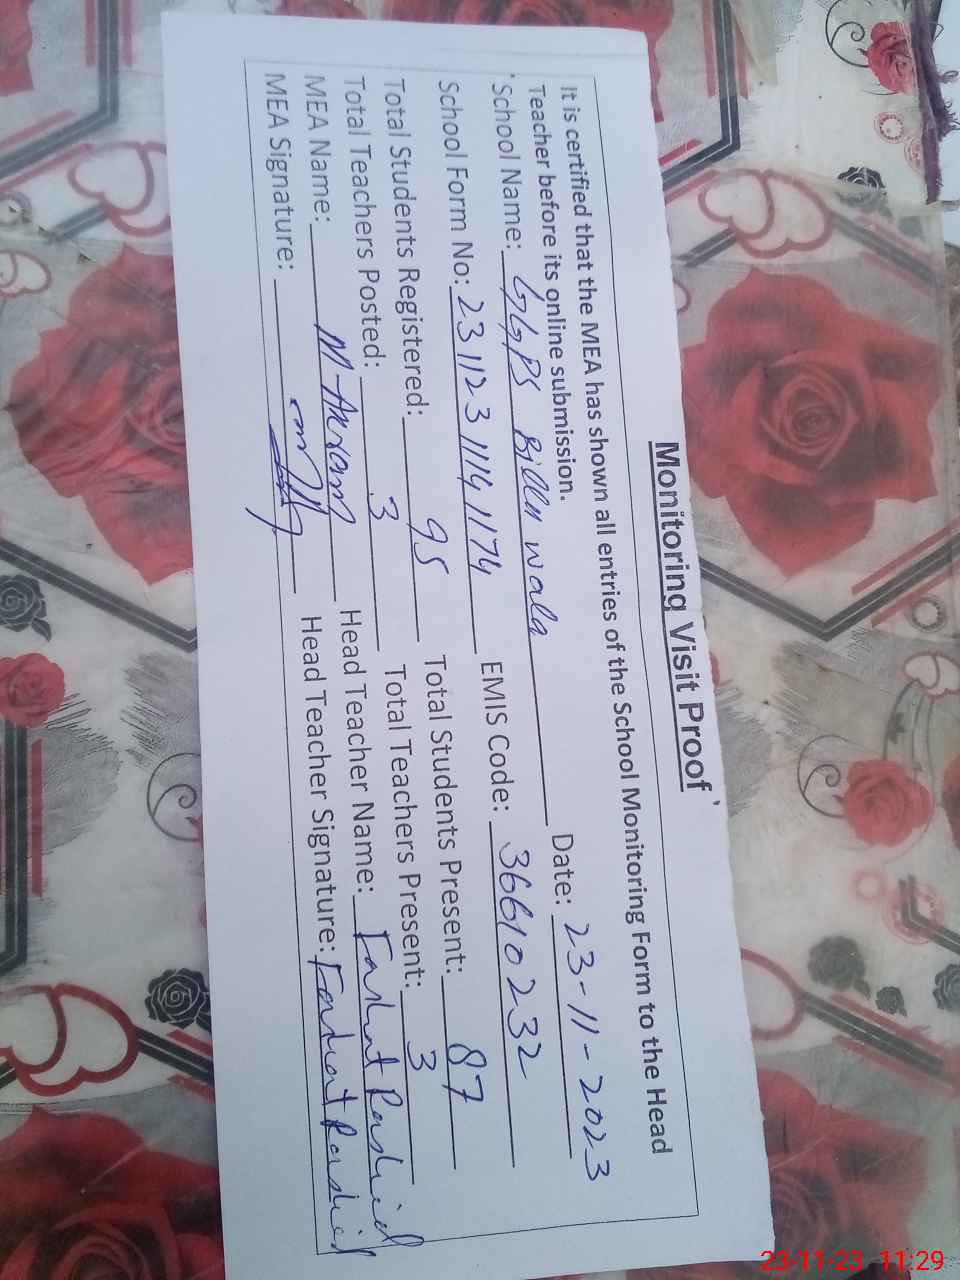 Monitoring Visit Proof
It is certified that the MEA has shown all entries of the School Monitoring Form to the Head
Teacher before its online submission.
School Name: GGPS Billu wala Date: 23-11-2023
School Form No: 231123 11141174 EMIS Code: 36610232
Total Students Registered: 95 Total Students Present: 87
Total Teachers Posted: 3 Total Teachers Present: 3
MEA Name: M Akram Head Teacher Name: Farhat Rashid
MEA Signature: Head Teacher Signature: Farhat Rashid
23-11-23 11:29